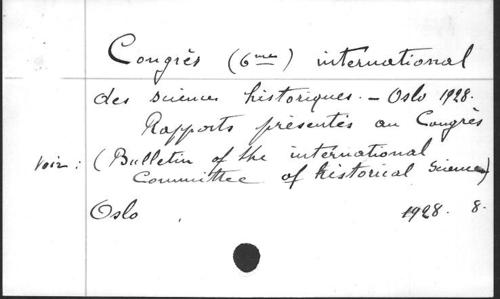 Congrès (6me) international
des sciences historiques. – Oslo 1928.
Rapports présentés au Congrès
Voir : (Bulletin of the international
Committee of historical Sciences)
Oslo 1928. 8.